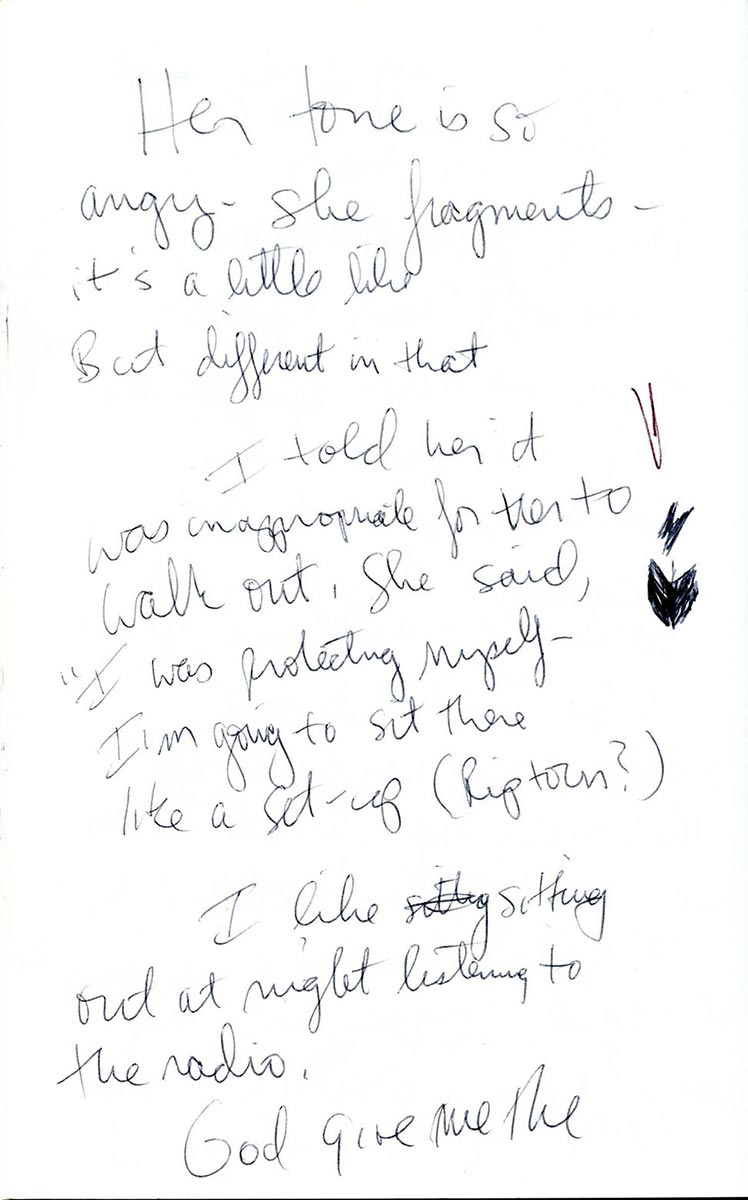 Her tone is so
angry - she fragments -
it's a little like
But different in that
I told her it
was inappropriate for her to
walk out. She said,
"I was protecting myself -
I'm going to sit there
like a set-up (Riptorn?)
I like sitting sitting
out at night listening to
the radio.
God give me the